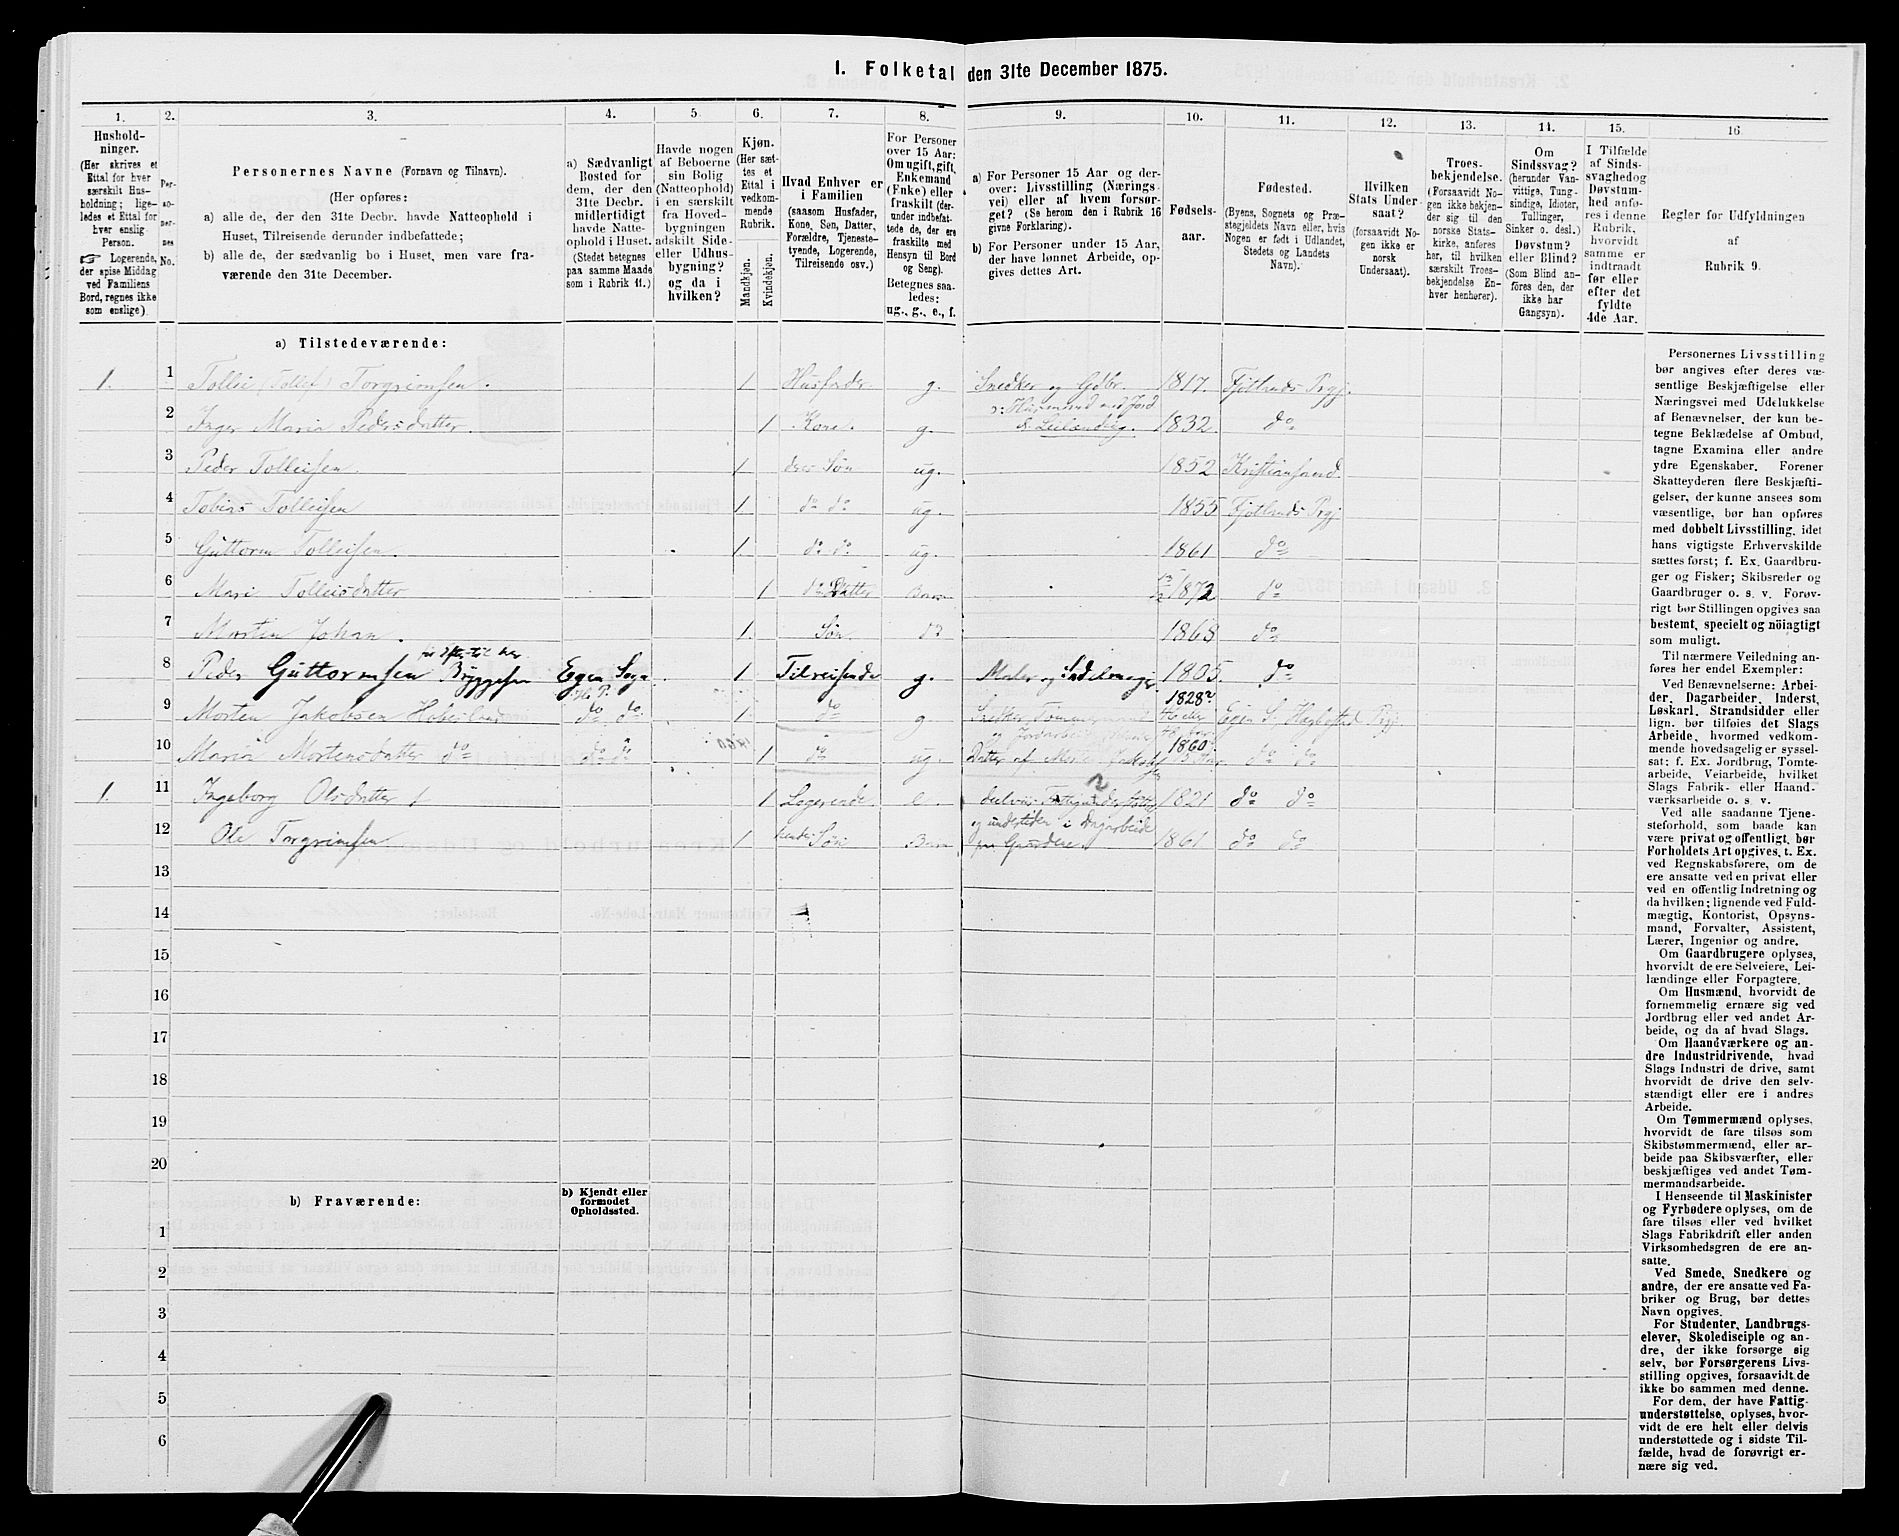 1. Folketal den 31te December 1875.
1. 2. 3. 4. 5. 6. 7. 8. 9. 10. 11. 12. 13. 14. 15. 16
Hushold-
ninger.
(Her skrives et
Ettal for hver
særskilt Hus-
holdning; lige-
ledes et Ettal for
hver enslig
Person.
☞ Logerende,
der spise Middag
ved Familiens
Bord, regnes ikke
som enslige)
Per-
so-
ner-
nes
No.
Personernes Navne (Fornavn og Tilnavn).
(Her opføres:
a) alle de, der den 31te Decbr. havde Natteophold i
Huset, Tilreisende derunder indbefattede;
b) alle de, der sædvanlig bo i Huset, men vare fra-
værende den 31te December.
a) Sædvanligt
Bosted for
dem, der den
31te Decbr.
midlertidigt
havde Natte-
ophold i Huset.
(Stedet betegnes
paa samme Maade
som i Rubrik 11.)
Havde nogen
af Beboerne
sin Bolig
(Natteophold)
i en særskilt
fra Hoved-
bygningen
adskilt Side-
eller Udhus-
bygning?
og da i
hvilken?
Kjøn.
(Her sæt-
tes et
Ettal i
vedkom-
mende
Rubrik.
Mandkjøn.
Kvindekjøn.
Hvad Enhver er
i Familien
(saasom Husfader,
Kone, Søn, Datter,
Forældre, Tjeneste-
tyende, Logerende,
Tilreisende osv.)
For Personer
over 15 Aar:
Om ugift, gift,
Enkemand
(Enke) eller
fraskilt (der-
under indbefat-
tede de, der ere
fraskilte med
Hensyn til Bord
og Seng).
Betegnes saa-
ledes:
ug., g., e., f.
a) For Personer 15 Aar og der-
over: Livsstilling (Nærings-
vei) eller af hvem forsør-
get? (Se herom den i Rubrik 16
givne Forklaring).
b) For Personer under 15 Aar,
der have lønnet Arbeide, op-
gives dettes Art.
Fødsels-
aar.
Fødested.
(Byens, Sognets og Præ-
stegjeldets Navn eller, hvis
Nogen er født i Udlandet,
Stedets og Landets
Navn).
Hvilken
Stats Under-
saat?
(forsaavidt No-
gen ikke er
norsk
Undersaat).
Troes-
bekjendelse.
(Forsaavidt No-
gen ikke bekjen-
der sig til den
norske Stats-
kirke, anføres
her, til hvilken
særskilt Troes-
bekjendelse En-
hver henhører).
Om
Sindssvag?
(herunder Van-
vittige, Tung-
sindige, Idioter,
Tullinger,
Sinker o. desl.)
Døvstum?
eller Blind?
(Som Blind an-
føres den, der
ikke har
Gangsyn).
I Tilfælde
af Sinds-
svaghed og
Døvstum-
hed anfø-
res i denne
Rubrik,
hvorvidt
samme er
indtraadt
før eller
efter det
fyldte
4de Aar.
Regler for Udfyldningen
af
Rubrik 9.
a) Tilstedeværende:
1. 1 Tollei (Tollef) Torgrimsen. 1 Husfader g. Snedker og Gdbr. 1817. Fjotlands Prgj.
ɔ: Husmand med Jord
2 Inger Maria Pedersdatter. 1 Kone. g. & Leilending. 1832. do
3 Peder Tolleisen 1 deres Søn ug. 1852 Kristianssand.
4 Tobias Tolleisen 1 do do ug. 1855 Fjotlands Prgj
5 Guttorm Tolleisen. 1. do do ug. 1861 do
6 Mari Tolleisdatter 1 do Datter Barn 1872 do
7 Mortin Johan. 1. Søn. do 1868 do
8 Peder Guttormsen Bryggesen Egen Sogn 1 Tilreisende g. Maler og Sadelmager 1805. do
9 Morten Jakobsen do do. 1 do g Snedker, 1828? Egen S. Hægbostad Prgj.
10 Maria Mortensdatter do do do 1 do ug. Datter af Morten Jakobsen 1860? do do
1. 11 Ingeborg Olsdatter 1 Logerende e. delvis Fattigunderstøttet 1821 do do
og undertiden i Dagarbeide
12 Ole Torgrimsen 1 hendes Søn Barn paa Gaardene 1861 do do
13
14
15
16
17
18
19
20
b) Fraværende:
b) Kjendt eller
formodet
Opholdssted.
1
2
3
4
5
6
Personernes Livsstilling
bør angives efter deres væ-
sentlige Beskjæftigelse eller
Næringsvei med Udelukkelse
af Benævnelser, der kun be-
tegne Beklædelse af Ombud,
tagne Examina eller andre
ydre Egenskaber. Forener
Skatteyderen flere Beskjæfti-
gelser, der kunne ansees som
væsentlige, bør han opføres
med dobbelt Livsstilling, idet
hans vigtigste Erhvervskilde
sættes først; f. Ex. Gaardbru-
ger og Fisker; Skibsreder og
Gaardbruger o. s. v. Forøv-
rigt bør Stillingen opgives saa
bestemt, specielt og nöiagtigt
som muligt.
Til nærmere Veiledning an-
føres her endel Exempler:
Ved Benævnelserne: Arbei-
der, Dagarbeider, Inderst,
Løskarl, Strandsidder eller
lign. bør tilføies det Slags
Arbeide, hvormed vedkom-
mende hovedsagelig er syssel-
sat: f. Ex. Jordbrug, Tomte-
arbeide, Veiarbeide, hvilket
Slags Fabrik- eller Haand-
værksarbeide o. s. v.
Ved alle saadanne Tjene-
steforhold, som baade kan
være privat og offentligt, bør
Forholdets Art opgives, t. Ex.
ved Regnskabsførere, om de
ere ansatte ved en privat eller
ved en offentlig Indretning og
da hvilken; lignende ved Fuld-
mægtig, Kontorist, Opsyns-
mand, Forvalter, Assistent,
Lærer, Ingeniør og andre.
Om Gaardbrugere oplyses,
hvorvidt de ere Selveiere, Lei-
lændinge eller Forpagtere.
Om Husmænd, hvorvidt de
fornemmelig ernære sig ved
Jordbrug eller ved andet Ar-
beide, og da af hvad Slags.
Om Haandværkere og an-
dre Industridrivende, hvad
Slags Industri de drive, samt
hvorvidt de drive den selv-
stændigt eller ere i andres
Arbeide.
Om Tømmermænd oplyses,
hvorvidt de fare tilsøs som
Skibstømmermænd, eller ar-
beide paa Skibsværfter, eller
beskjæftiges ved andet Tøm-
mermandsarbeide.
I Henseende til Maskinister
og Fyrbødere oplyses, om de
fare tilsøs eller ved hvilket
Slags Fabrikdrift eller anden
Virksomhedsgren de ere an-
satte.
Ved Smede, Snedkere og
andre, der ere ansatte ved Fa-
briker og Brug, bør dettes
Navn opgives.
For Studenter, Landbrugs-
elever, Skoledisciple og an-
dre, der ikke forsørge sig
selv, bør Forsørgerens Livs-
stilling opgives, forsaavidt de
ikke bo sammen med denne.
For dem, der have Fattig-
understøttelse, oplyses, hvor-
vidt de ere helt eller delvis
understøttede og i sidste Til-
fælde, hvad de forøvrigt er-
nære sig ved.